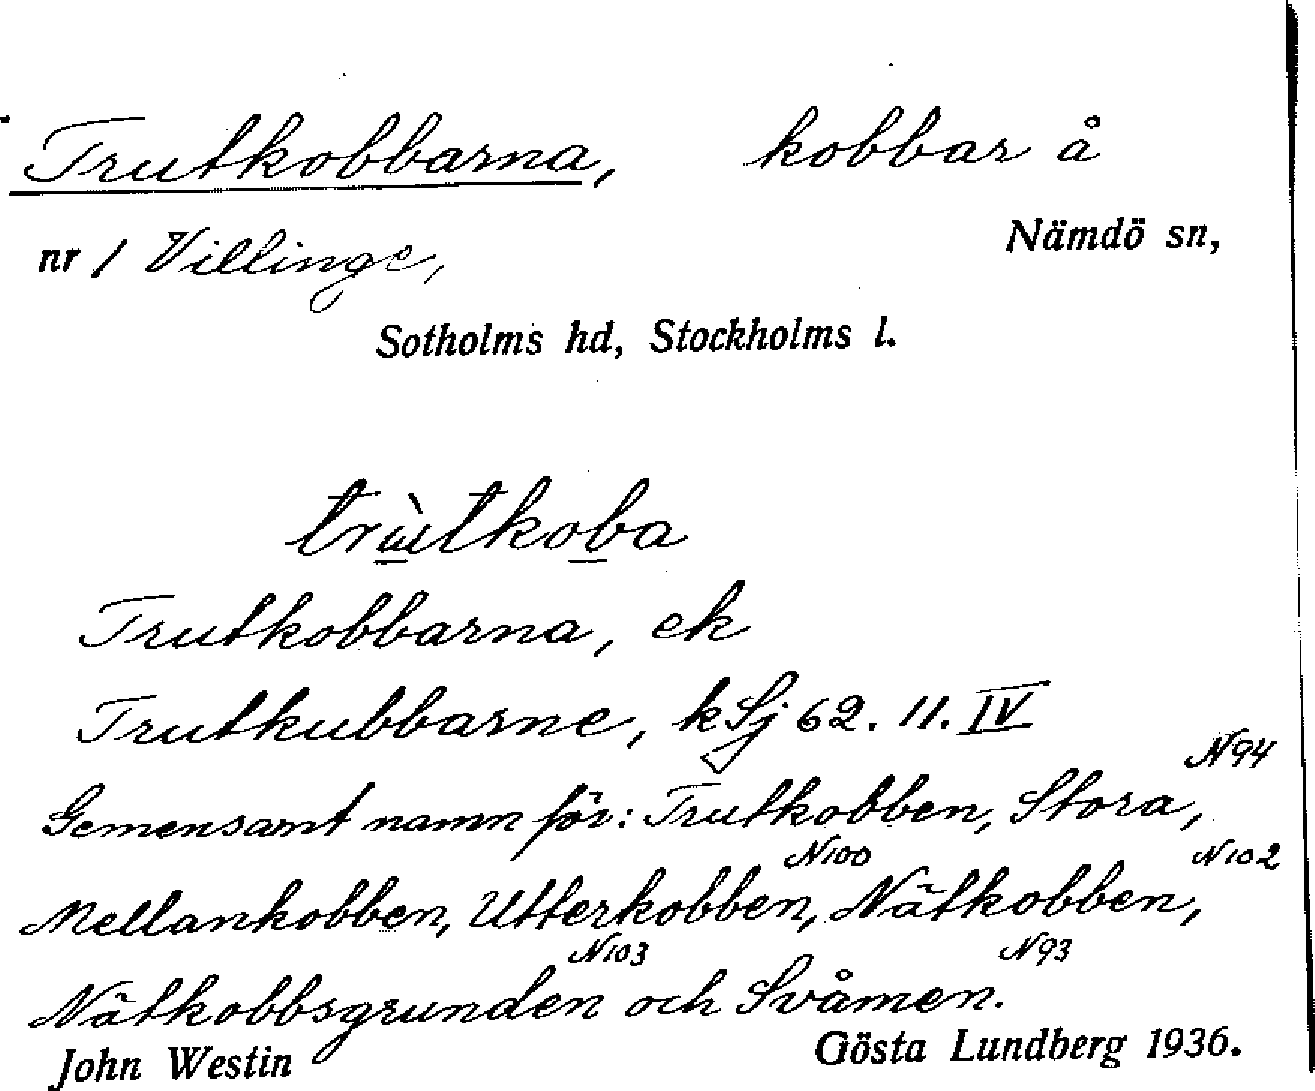 Trutkobbarna, kobbar å
nr 1 Villinge, Nämdö sn,
Sotholms hd, Stockholms l.
trùtkoba
Trutkobbarna, ek
Trutkubbarne, kSj 62. 11. IV
N94
Gemensamt namn för: Trutkobben, Stora,
N100 N102
Mellankobben, Utterkobben, Nätkobben,
N103 N93
Nätkobbsgrunden och Svåmen.
John Westin Gösta Lundberg 1936.